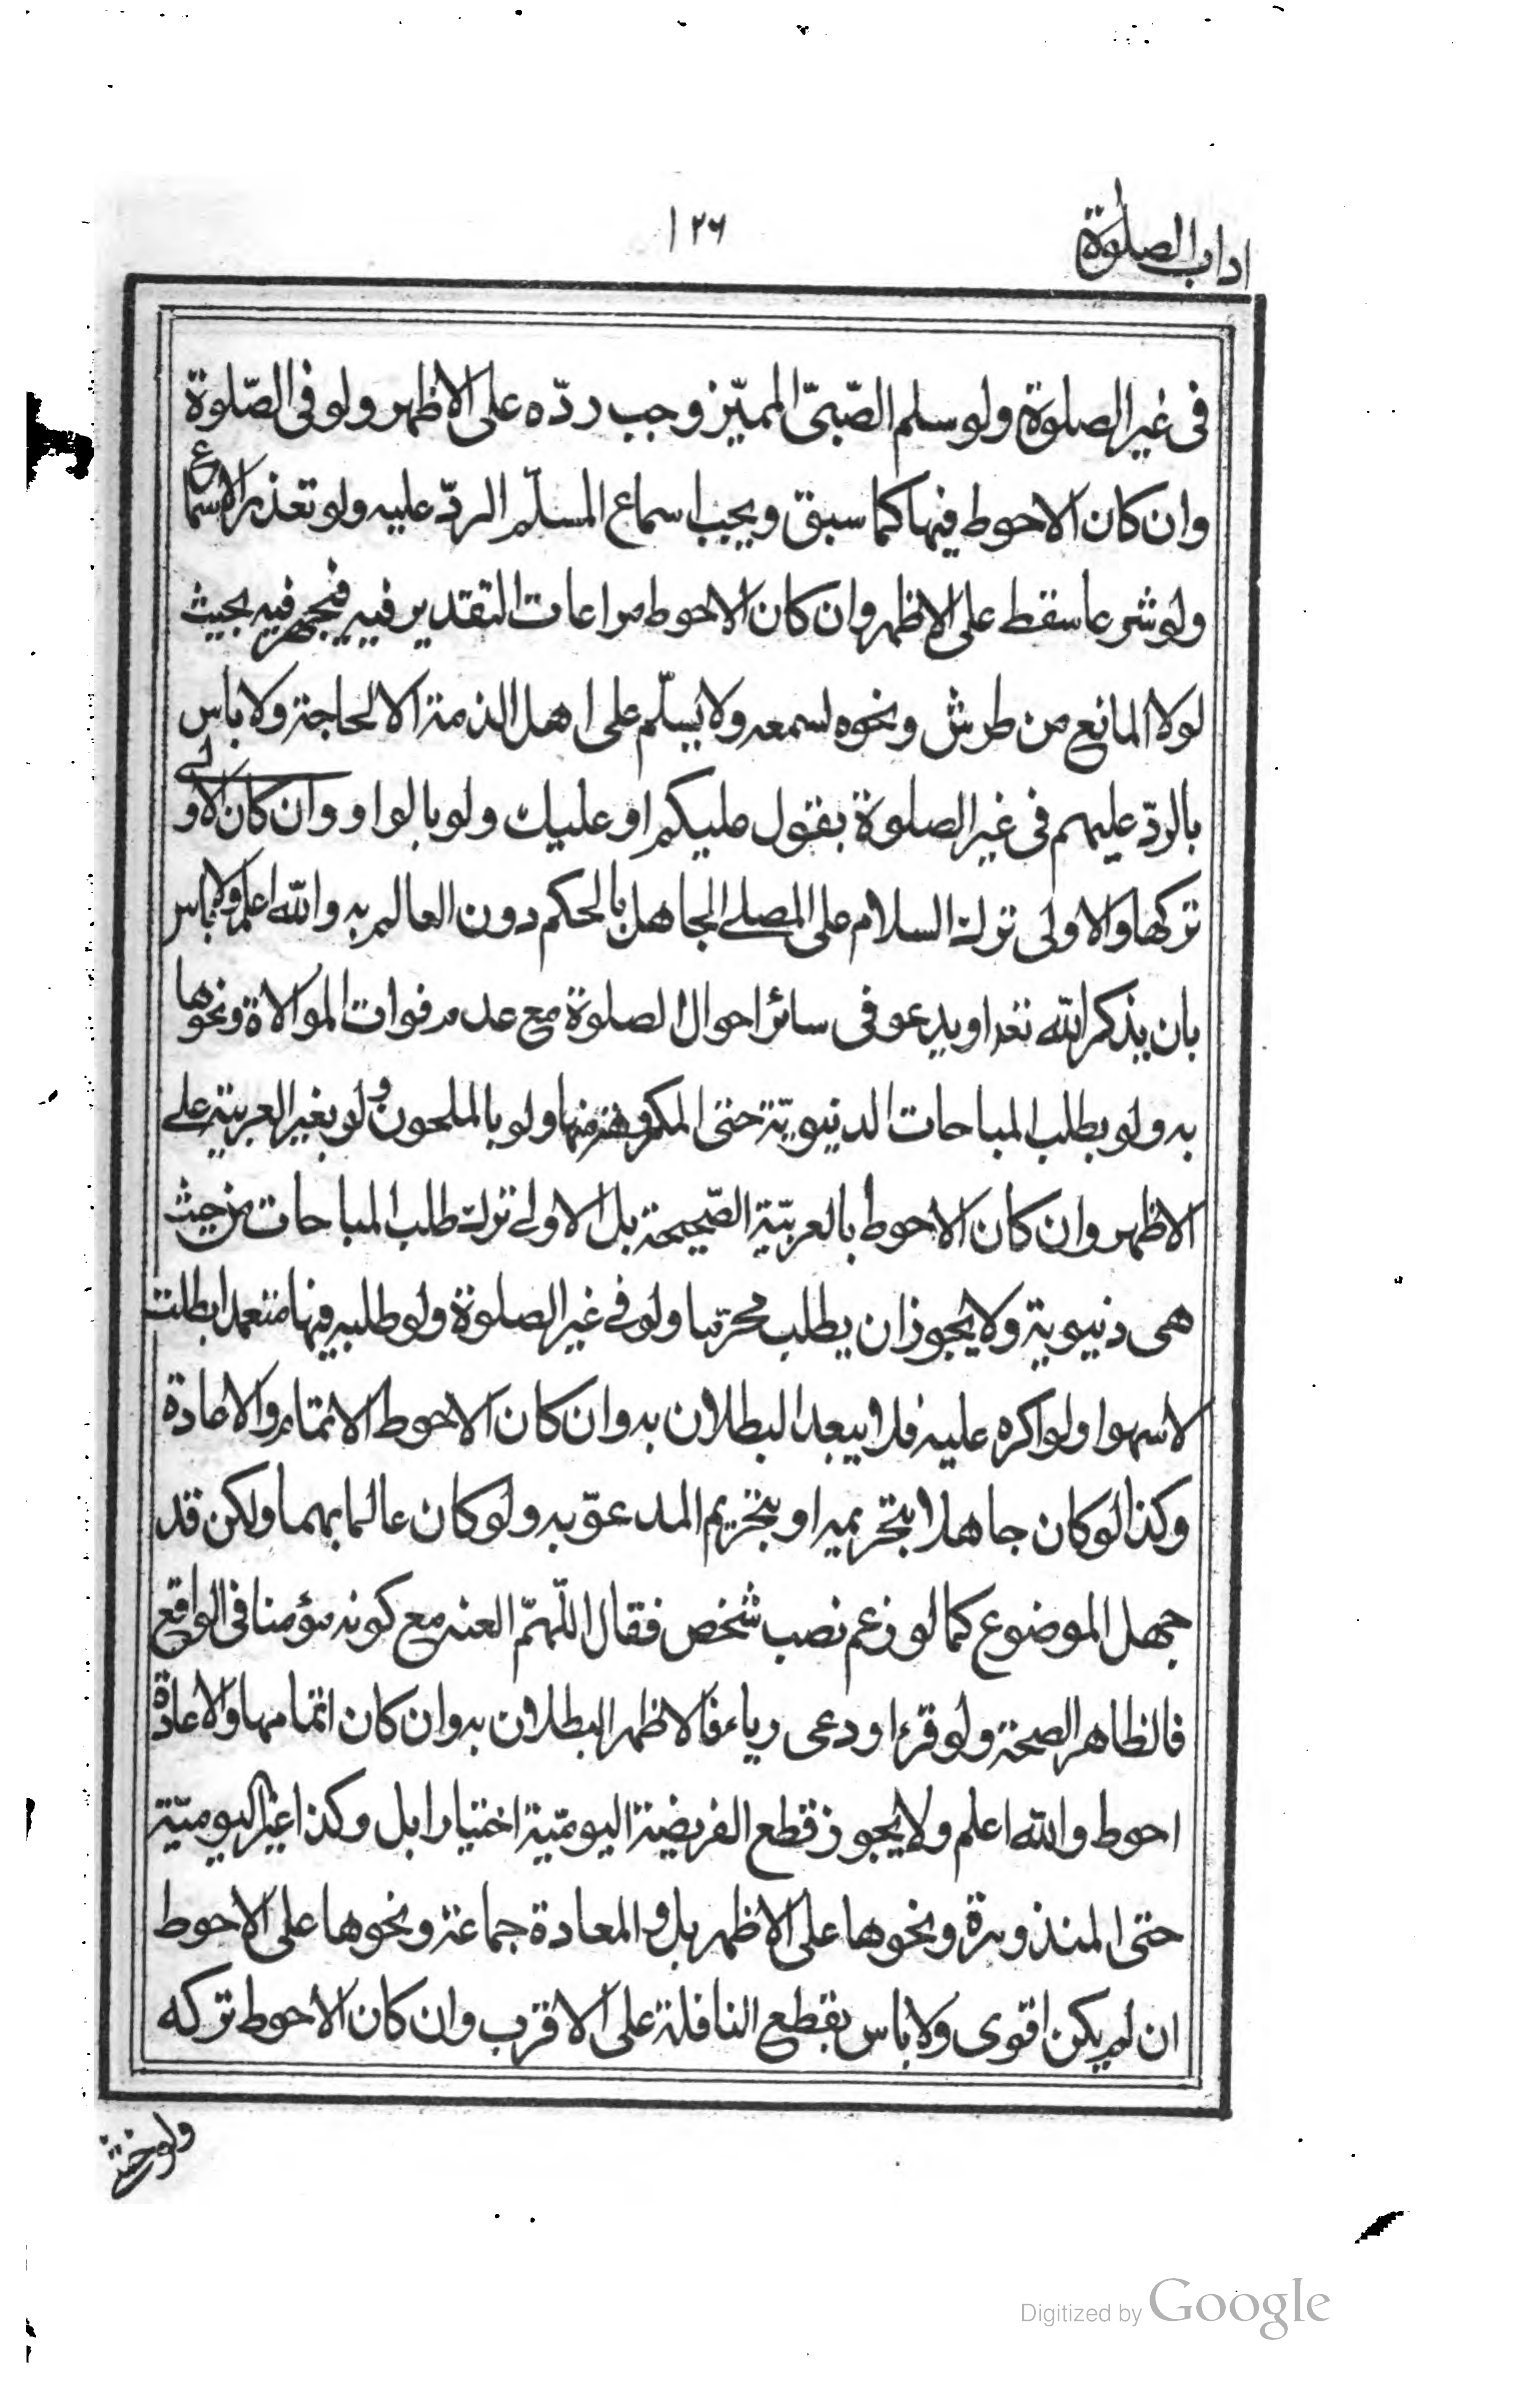 اداب الصلوة
١٢٦
فى غير الصلوة ولو سلم الصّبىّ المميّز وجب ردّه على الاظهر ولو فى الصّلوة
وان كان الاحوط فيها كما سبق ويجب اسماع المسلّم الردّ عليه ولو تعذر الاسماع
ولو شرعا سقط على الاظهر وان كان الاحوط مراعات التقدير فيه فيجهر فيه بحيث
لولا المانع من طرش ونحوه لسمعه ولا يسلّم على اهل الذمة الا لحاجة ولا باس
بالردّ عليهم فى غير الصلوة بقول عليكم او عليك ولو بالواو وان كان الاولى
تركها والاولى ترك السلام على المصلے الجاهل بالحكم دون العالم به والله اعلم ولا باس
بان يذكر الله تعر او يدعو فى سائر احوال الصلوة مع عدم فوات الموالاة ونحوها
به ولو بطلب المباحات الدنيويّة حتى المكروهة منها ولو بالملحون ولو بغير العربية علے
الاظهر وان كان الاحوط بالعربيّة الصّحيحة بل الاولے ترك طلب المباحات من حيث
هى دنيوية ولا يجوز ان يطلب محرّما ولو فے غير الصلوة ولو طلبه فيها متعمدا بطلت
لا سهوا ولو اكره عليه فلا يبعد البطلان به وان كان الاحوط الاتمام والاعادة
وكذا لو كان جاهلا بتحريمه او بتحريم المدعوّ به ولو كان عالما بهما ولكن قد
جهل الموضوع كما لو زعم نصب شخص فقال اللّهمّ العنه مع كونه مؤمنا فى الواقع
فالظاهر الصحة ولو قرء او دعى رياء فالاظهر البطلان به وان كان اتمامها والاعادة
احوط والله اعلم ولا يجوز قطع الفريضة اليوميّة اختيارا بل وكذا غير اليوميّة
حتى المنذورة ونحوها على الاظهر بل والمعادة جماعة ونحوها على الاحوط
ان لم يكن اقوى ولا باس بقطع النافلة على الاقرب وان كان الاحوط تركه
ولو خشے
Digitized by Google